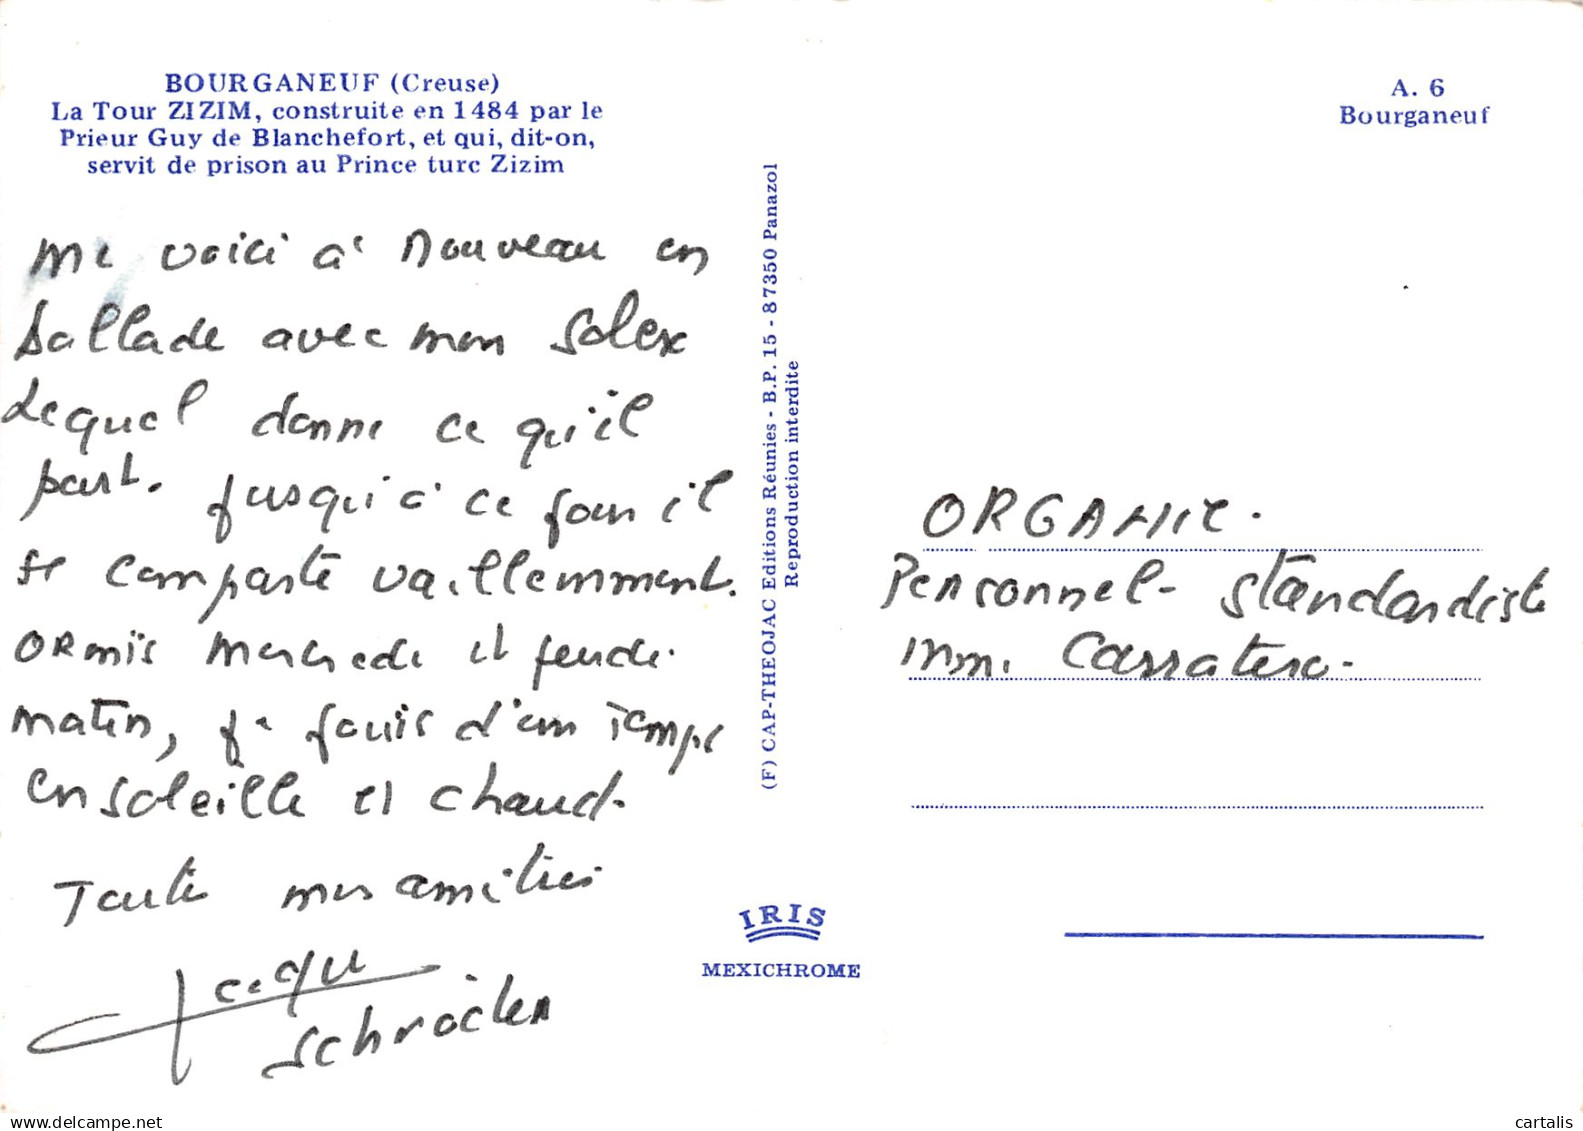 BOURGANEUF (Creuse)
La Tour ZIZIM, construite en 1484 par le
Prieur Guy de Blanchefort, et qui, dit-on,
servit de prison au Prince turc Zizim
me voici à nouveau en
ballade avec mon Solex
lequel donne ce qu'il
peut. Jusqu'à ce jour il
se comporte vaillemment.
ORmis mercredi et jeudi
matin, je jouis d'un temps
ensoleillé et chaud.
Toutes mes amitiés
Jacques
Schröder
(F) CAP-THEOJAC Editions Réunies - B.P. 15 - 87350 Panazol
Reproduction interdite
IRIS
MEXICHROME
A. 6
Bourganeuf
ORGANIC.
Personnel - Standardiste
Mme Carratero.
delcampe.net
cartalis